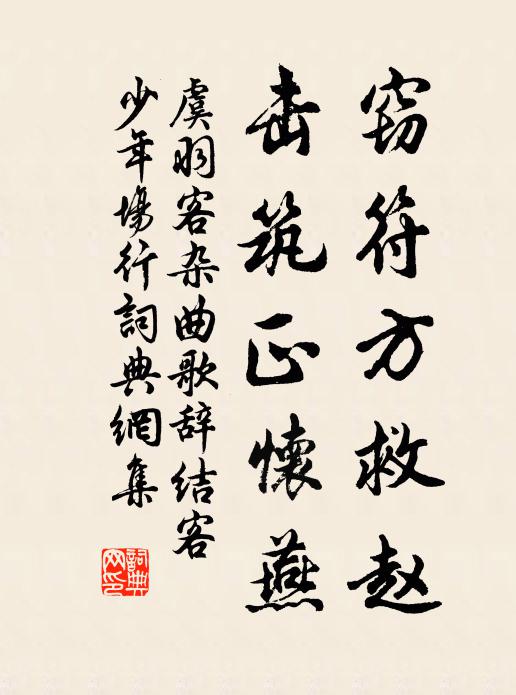 窃符方救赵
击筑正懷燕
虞羽客杂曲歌辞结客
少年場行詞典網集
詞典网印